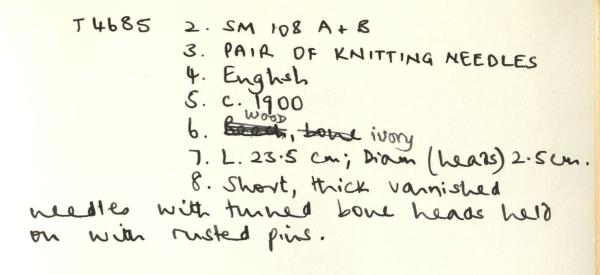 T4685 2. SM 108 A + B
3. PAIR OF KNITTING NEEDLES
4. English
5. c. 1900
6. WOOD, ivory
7. L. 23.5 cm; Diam (heads) 2.5 cm.
8. Short, thick varnished
needles with turned bone heads held
on with rusted pins.